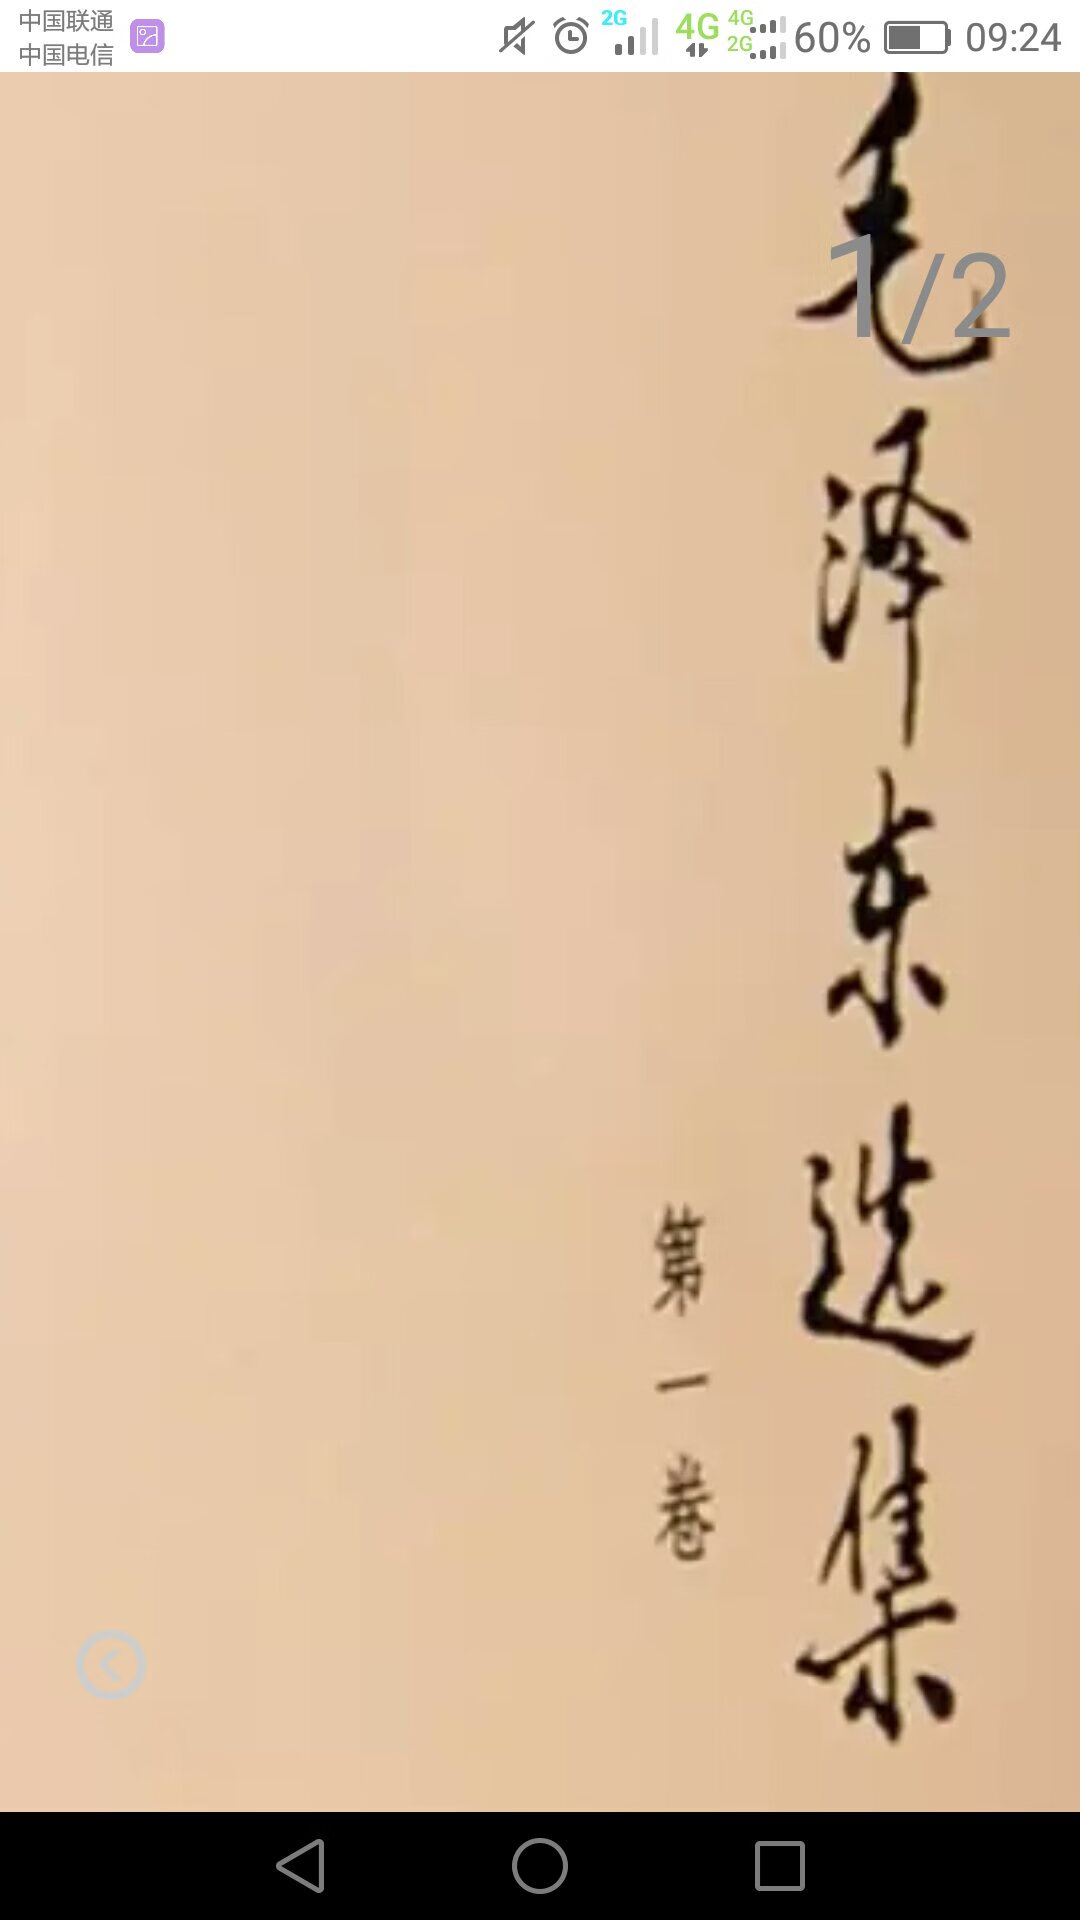 中国联通
中国电信
2G
4G
4G
2G
60%
09:24
1/2
毛泽东选集
第一卷